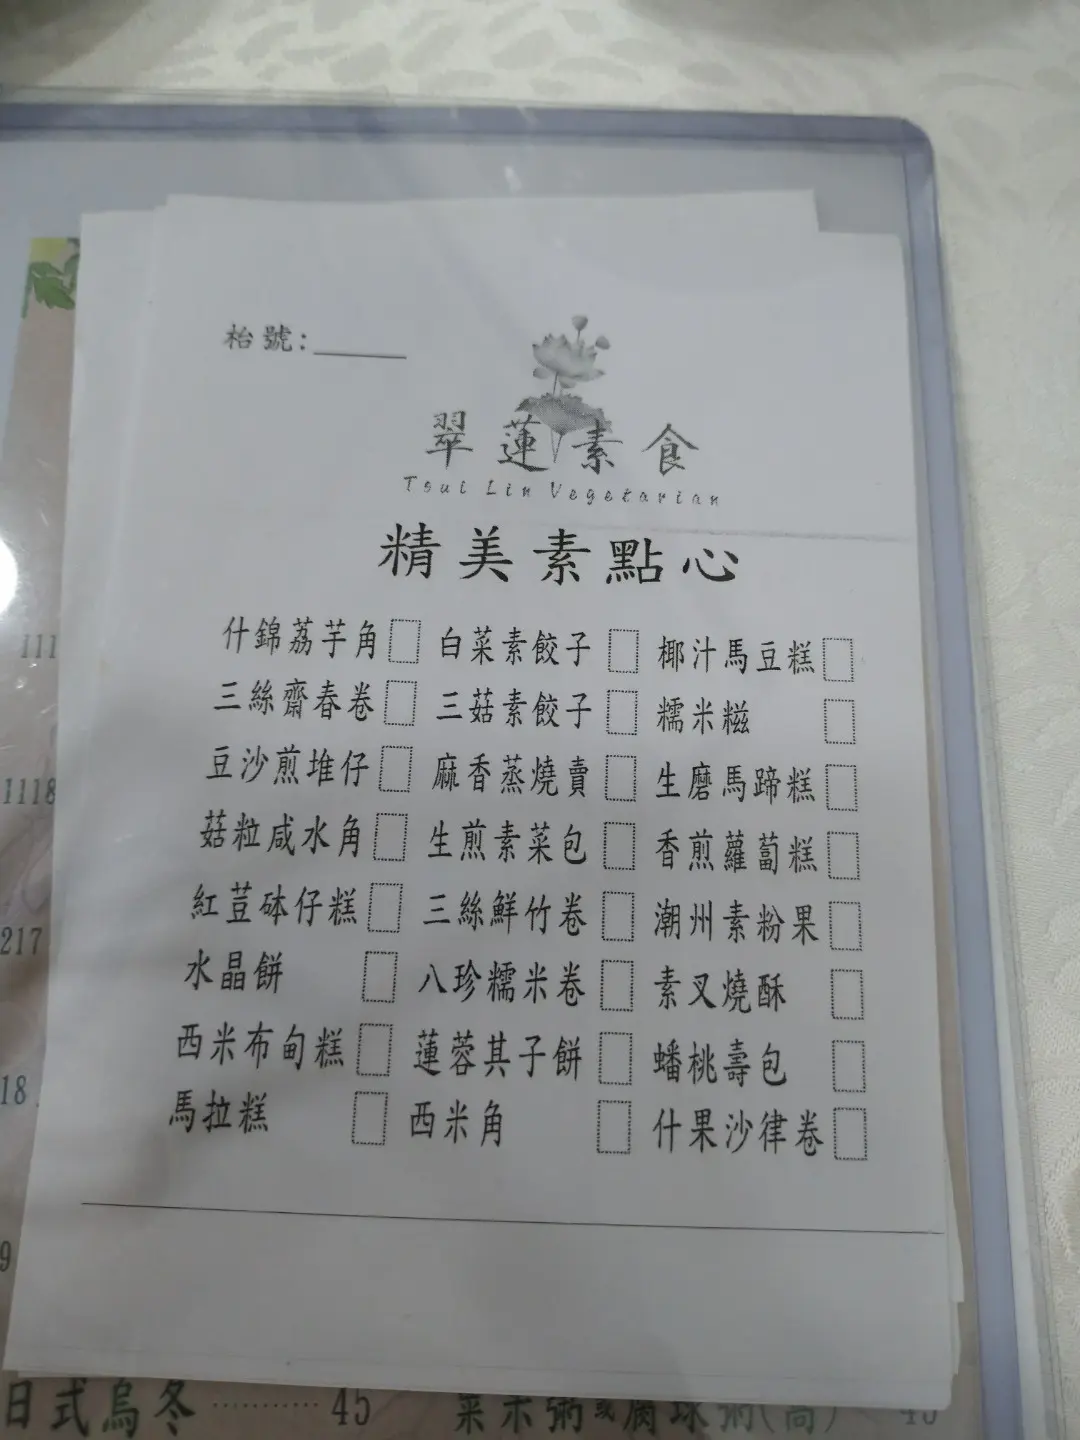 枱號：______
翠蓮素食
Tsui Lin Vegetarian
精美素點心
什錦荔芋角 白菜素餃子 椰汁馬豆糕
三絲齋春卷 三菇素餃子 糯米糍
豆沙煎堆仔 麻香蒸燒賣 生磨馬蹄糕
菇粒咸水角 生煎素菜包 香煎蘿蔔糕
紅荳砵仔糕 三絲鮮竹卷 潮州素粉果
水晶餅 八珍糯米卷 素叉燒酥
西米布甸糕 蓮蓉其子餅 蟠桃壽包
馬拉糕 西米角 什果沙律卷
111
1118
217
18
9
日式烏冬 45 菜米粥或腐球粥(窩)